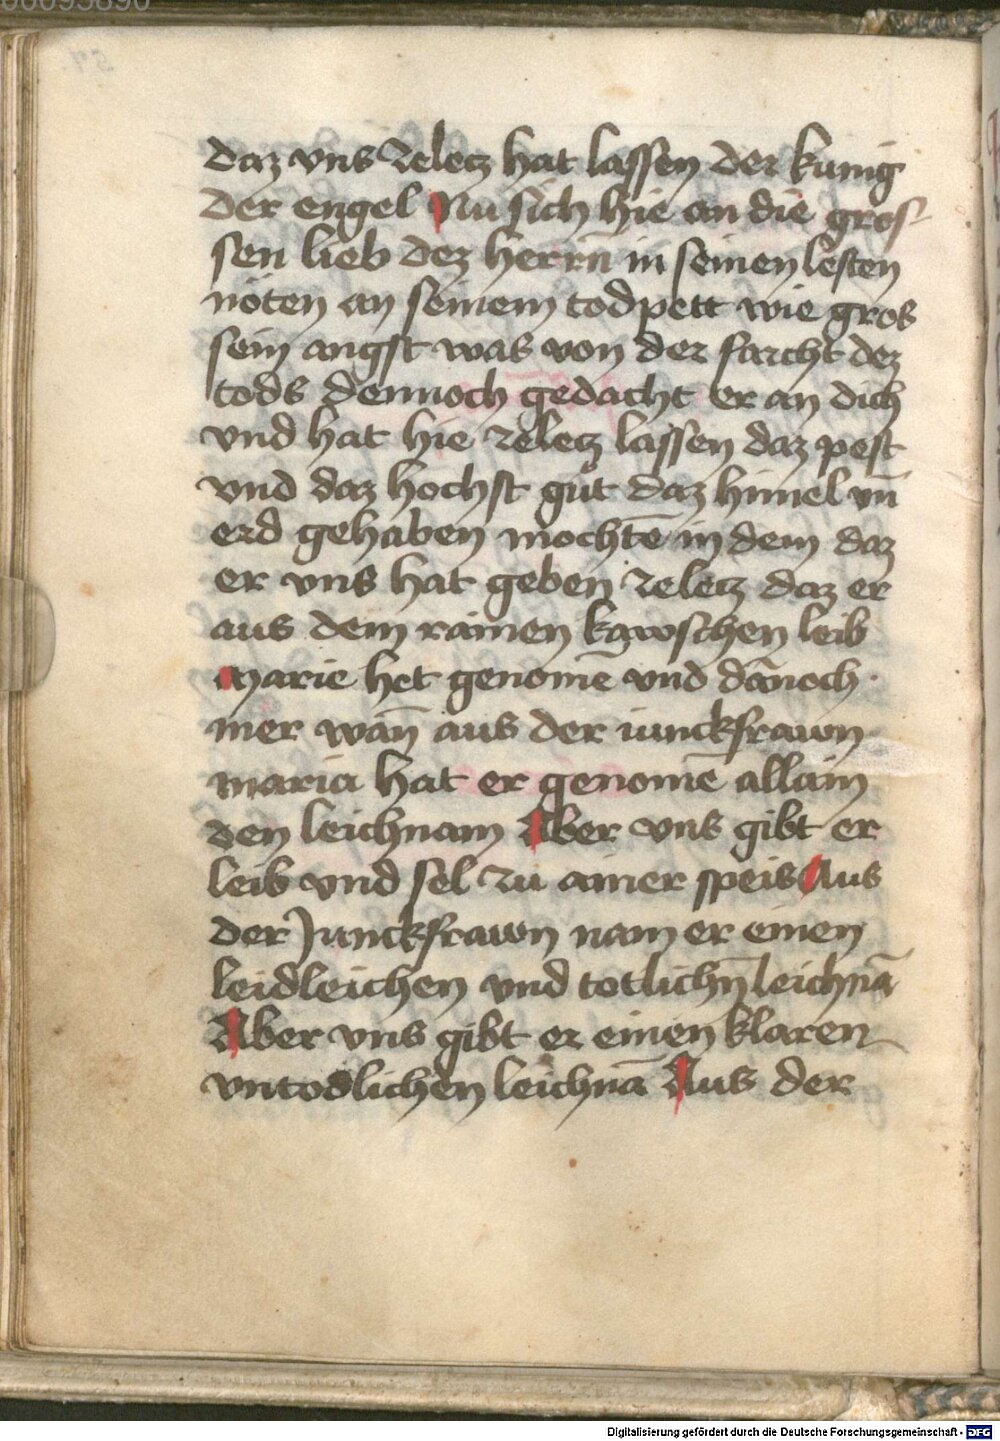 daz vns zeletz hat lassen der kunig
der engel Nu sich hie an die gros-
sen lieb dez herrn in seinen lesten
nöten an seinem todpett wie gros
sein angst was von der farcht dez
tods dennoch gedacht er an dich
vnd hat hie zeletz lassen daz pest
vnd daz hochst güt daz himel vn̄
erd gehaben mochtē in dem daz
er vns hat geben zeletz daz er
aus dem rainen kawschen leib
Marie het genomē vnd dānoch
mer wan̄ aus der iunckfrawn
maria hat er genomē allain
den leichnam Aber vns gibt er
leib vnd sel zu ainer speis Aus
der Junckfrawn nam er einen
leidleichen vnd totlichn̄ leichnā
Aber vns gibt er einen klaren
vntodlichen leichnā Aus der
Digitalisierung gefördert durch die Deutsche Forschungsgemeinschaft - DFG